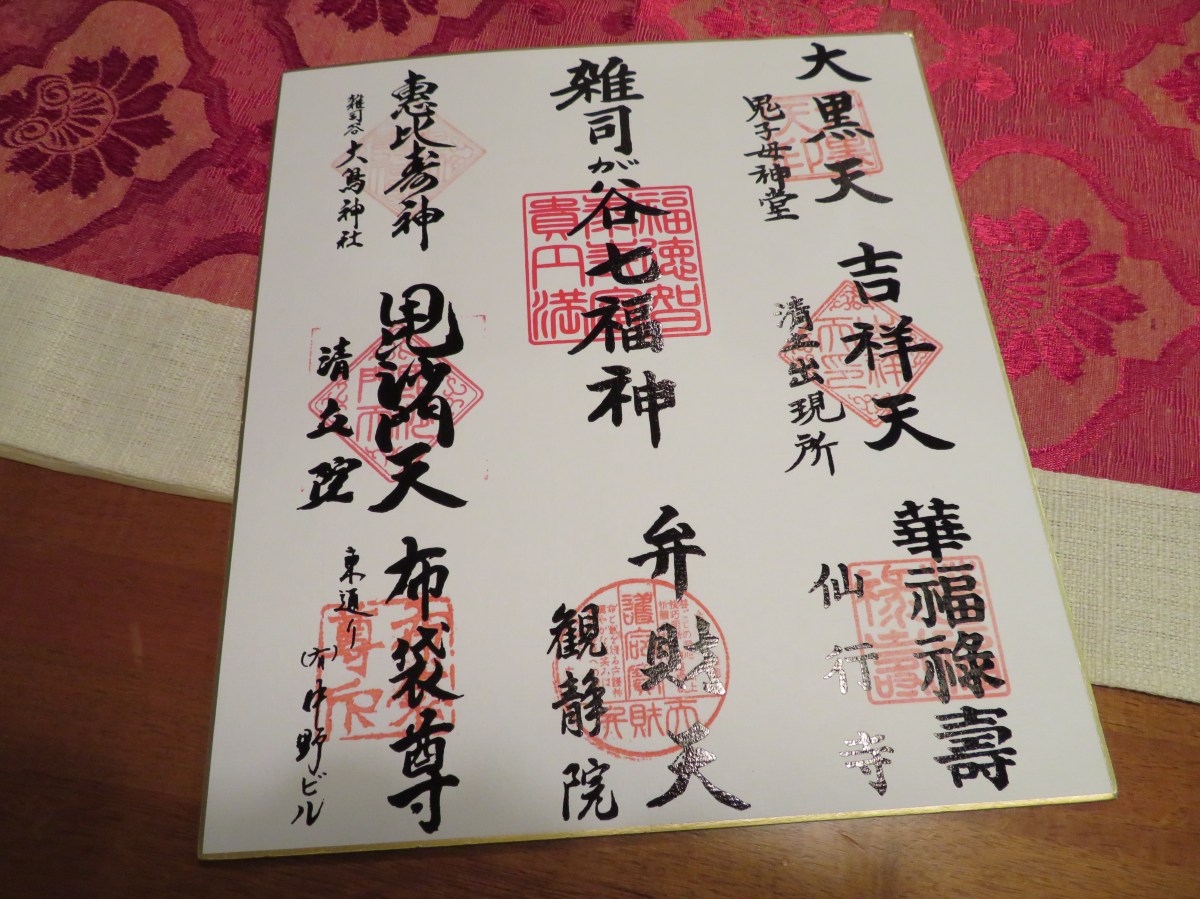 大黒天
鬼子母神堂
吉祥天
清土出現所
華福祿壽
仙行寺
雑司が谷七福神
福徳智
貴円満
弁財天
観静院
恵比寿神
雑司谷 大鳥神社
毘沙門天
清立院
布袋尊
東通り (有)中野ビル